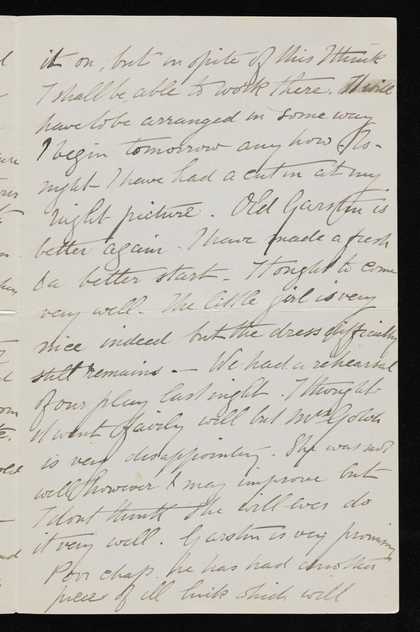 it on, but in spite of this I think
I shall be able to work there. It will
have to be arranged in some way
I begin tomorrow any how. To-
night I have had a cut in at my
night picture. Old Garstin is
better again. I have made a fresh
& a better start - It ought to come
very well. The little girl is very
nice indeed but the dress difficulty
still remains. — We had a rehearsal
of our play last night. I thought
it went fairly well but Mrs Gotch
is very disappointing. She was not
well however & may improve but
I dont think she will ever do
it very well. Garstin is very promising
Poor chap he has had another
piece of ill luck which will